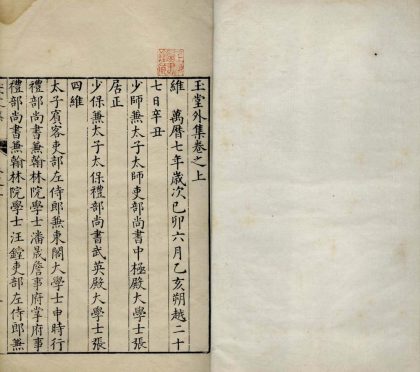 玉堂外集卷之上
維　萬曆七年歲次己卯六月乙亥朔越二十
七日辛丑
少師兼太子太師吏部尚書中極殿大學士張
居正
少保兼太子太保禮部尚書武英殿大學士張
四維
太子賓客吏部左侍郎兼東閣大學士申時行
禮部尚書兼翰林院學士潘晟詹事府掌府事
禮部尚書兼翰林院學士汪鏜吏部左侍郎兼